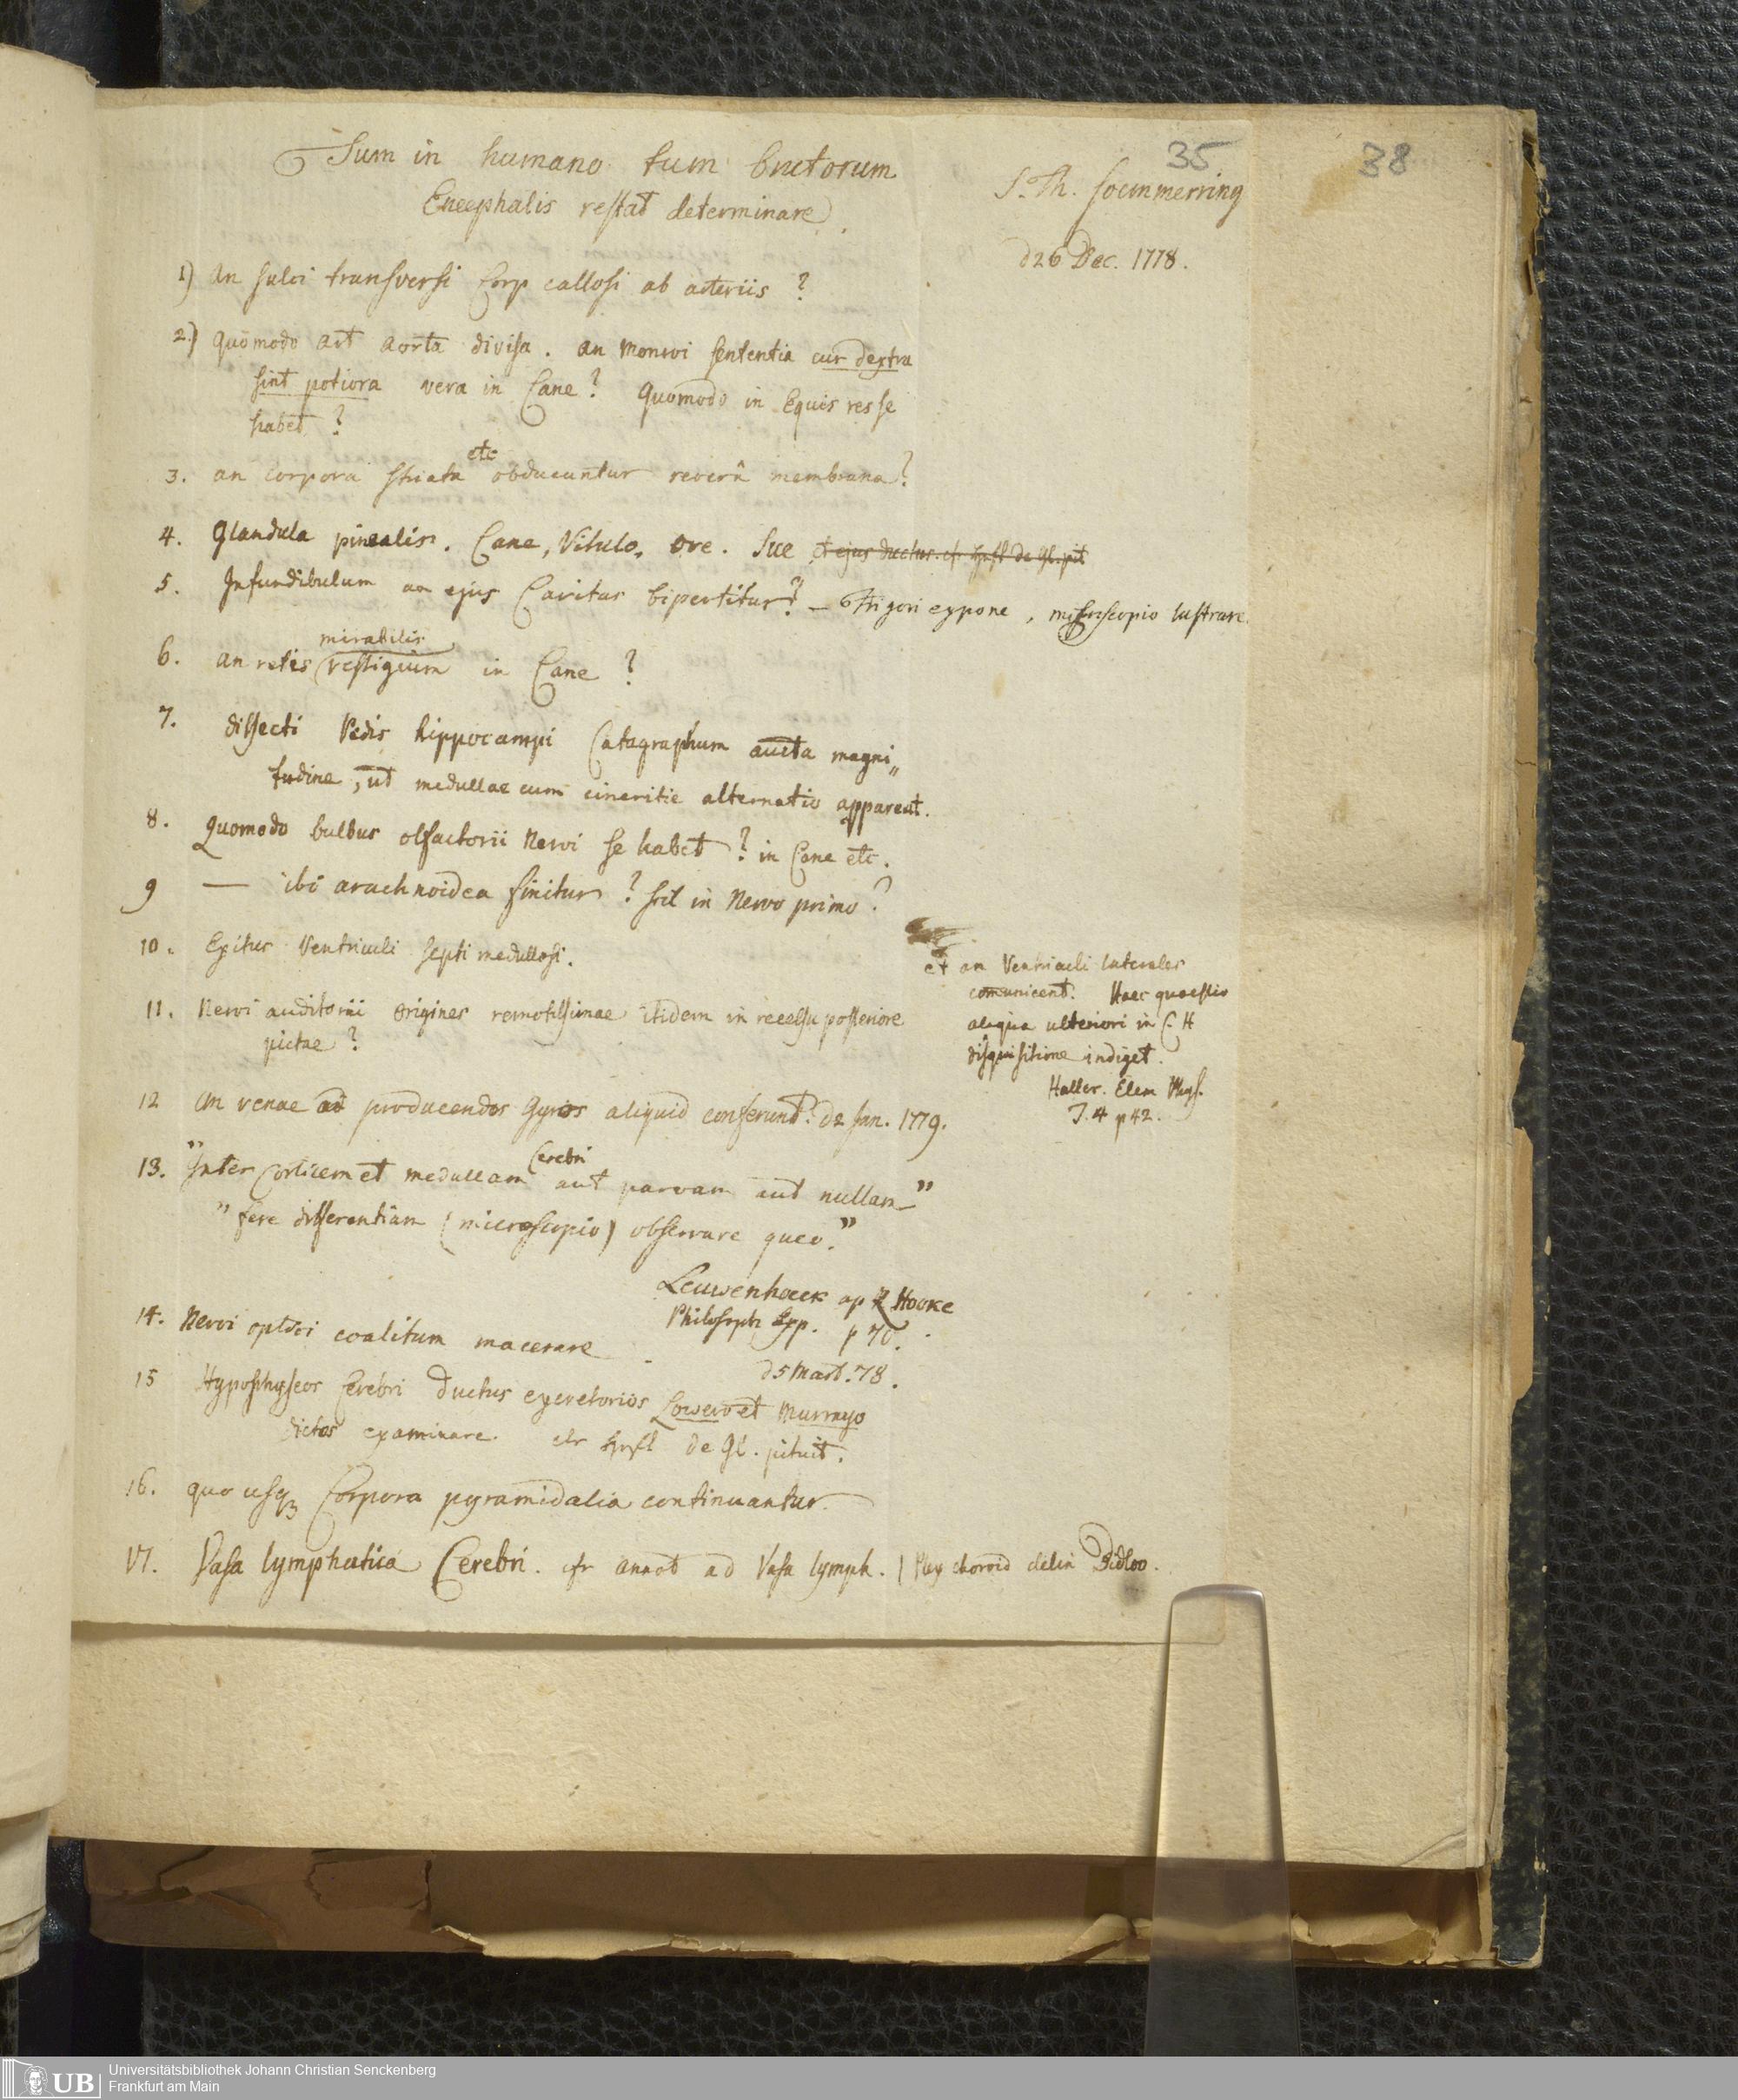 35
38
Tum in humano tum brutorum
Encephalis restat determinare.
S. Th. Soemmerring
d 26 Dec. 1778.
1) an sulci transversi Corp callosi ab arteriis ?
2.) quomodo art aorta divisa. an Monroi sententia cur dextra
sint potiora vera in Cane? Quomodo in Equis res se
habet ?
3. an corpora striata etc obducuntur reverâ membrana?
4. Glandula pinealis. Cane, Vitulo, Ove. Sue et ejus ductus. cf. de Gl. pit
5. Infundibulum an ejus Cavitas bipertitur? – Frigori expone, microscopio lustrare.
6. an retis mirabilis vestigium in Cane ?
7. dissecti Pedis hippocampi Catagraphum aucta magni„
tudine, ut medullae cum cineritie alternatio appareat.
8. Quomodo bulbus olfactorii Nervi se habet ? in Cane etc.
9 — ibi arachnoidea finitur ? scil in Nervo primo ?
10. Exitus Ventriculi septi medullosi.
et an Ventriculi laterales
comunicent. Haec quaestio
aliqua ulteriori in C. H
disquisitione indiget.
Haller. Elem Phys.
T. 4 p 42.
11. Nervi auditorii origines remotissimae itidem in recessu posteriore
pictae ?
12 an venae ad producendos Gyros aliquid conferunt? d 2 Jan. 1779.
13. "Inter Corticem et medullam Cerebri aut parvam aut nullam"
"fere differentiam (microscopio) observare queo."
Leuwenhoeck ap R Hooke
Philosoph Exp. p 70.
14. Nervi optici coalitum macerare
d 5 Mart. 78.
15 Hypophyseos Cerebri ductus excretorios Lowero et Murrayo
dictos examinare. de Gl. pituit.
16. quo usq3 Corpora pyramidalia continuantur.
17. Vasa lymphatica Cerebri. cfr annot ad Vasa lymph. | Plex choroid delin Bidloo.
UB
Universitätsbibliothek Johann Christian Senckenberg
Frankfurt am Main